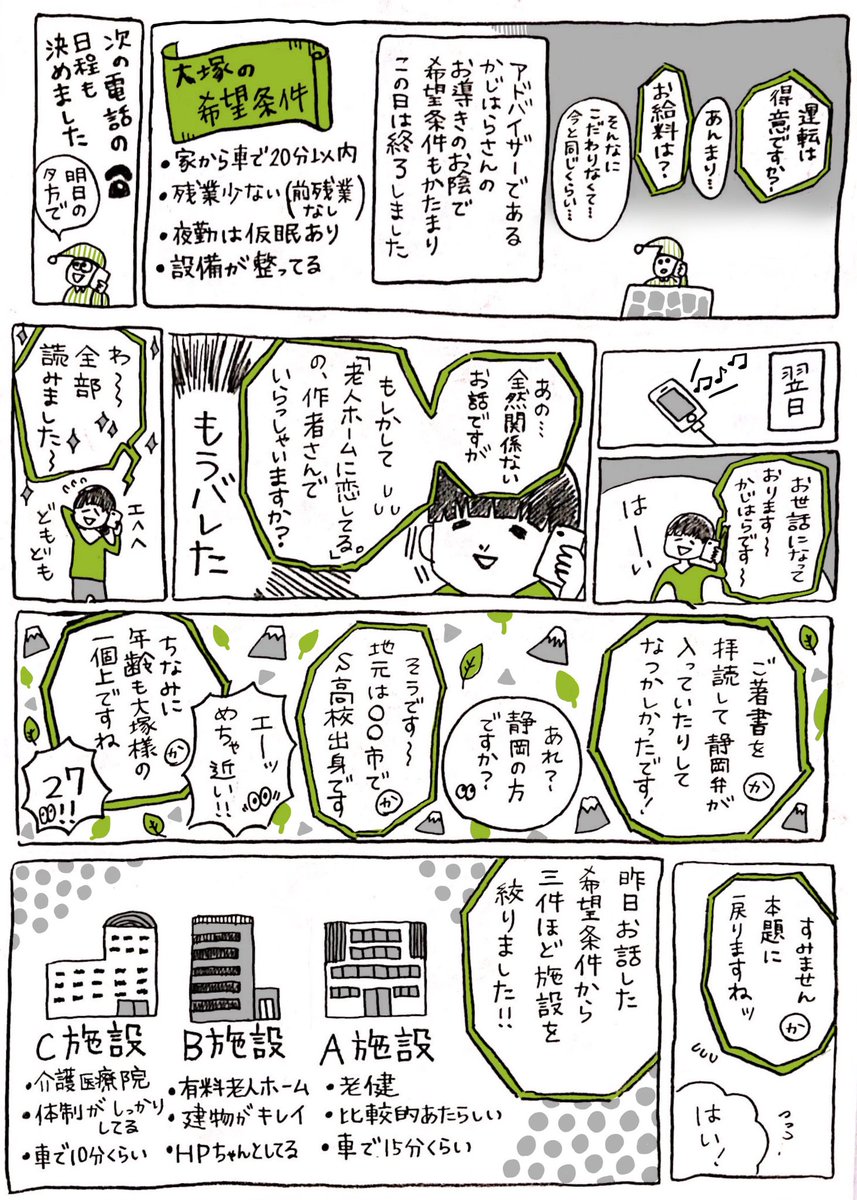 運転は
得意ですか?
あんまり…
お給料は?
そんなに
こだわりなくて…
今と同じくらい…
アドバイザーである
かじはらさんの
お導きのお陰で
希望条件もかたまり
この日は終ろしました
大塚の
希望条件
・家から車で20分以内
・残業少ない(前残業なし)
・夜勤は仮眠あり
・設備が整ってる
次の電話の
日程も
決めました
明日の
夕方で
翌日
お世話になって
おります〜
かじはらです〜
はーい
あの…
全然関係ない
お話ですが
もしかして
「老人ホームに恋してる。」
の、作者さんで
いらっしゃいますか?
もうバレた
わ〜〜
全部
読みました〜
エヘヘ
どもども
ご著書を
拝読して静岡弁が
入っていたりして
なつかしかったです!
か
あれ?
静岡の方
ですか?
そうです〜
地元は〇〇市で
S高校出身です
か
エーッ
めちゃ近い!!
ちなみに
年齢も大塚様の
一個上ですね
か
27
!!
すみません
本題に
戻りますねッ
か
はい!
昨日お話した
希望条件から
三件ほど施設を
絞りました!!
A施設
・老健
・比較的あたらしい
・車で15分くらい
B施設
・有料老人ホーム
・建物がキレイ
・HPちゃんとしてる
C施設
・介護医療院
・体制がしっかり
してる
・車で10分くらい